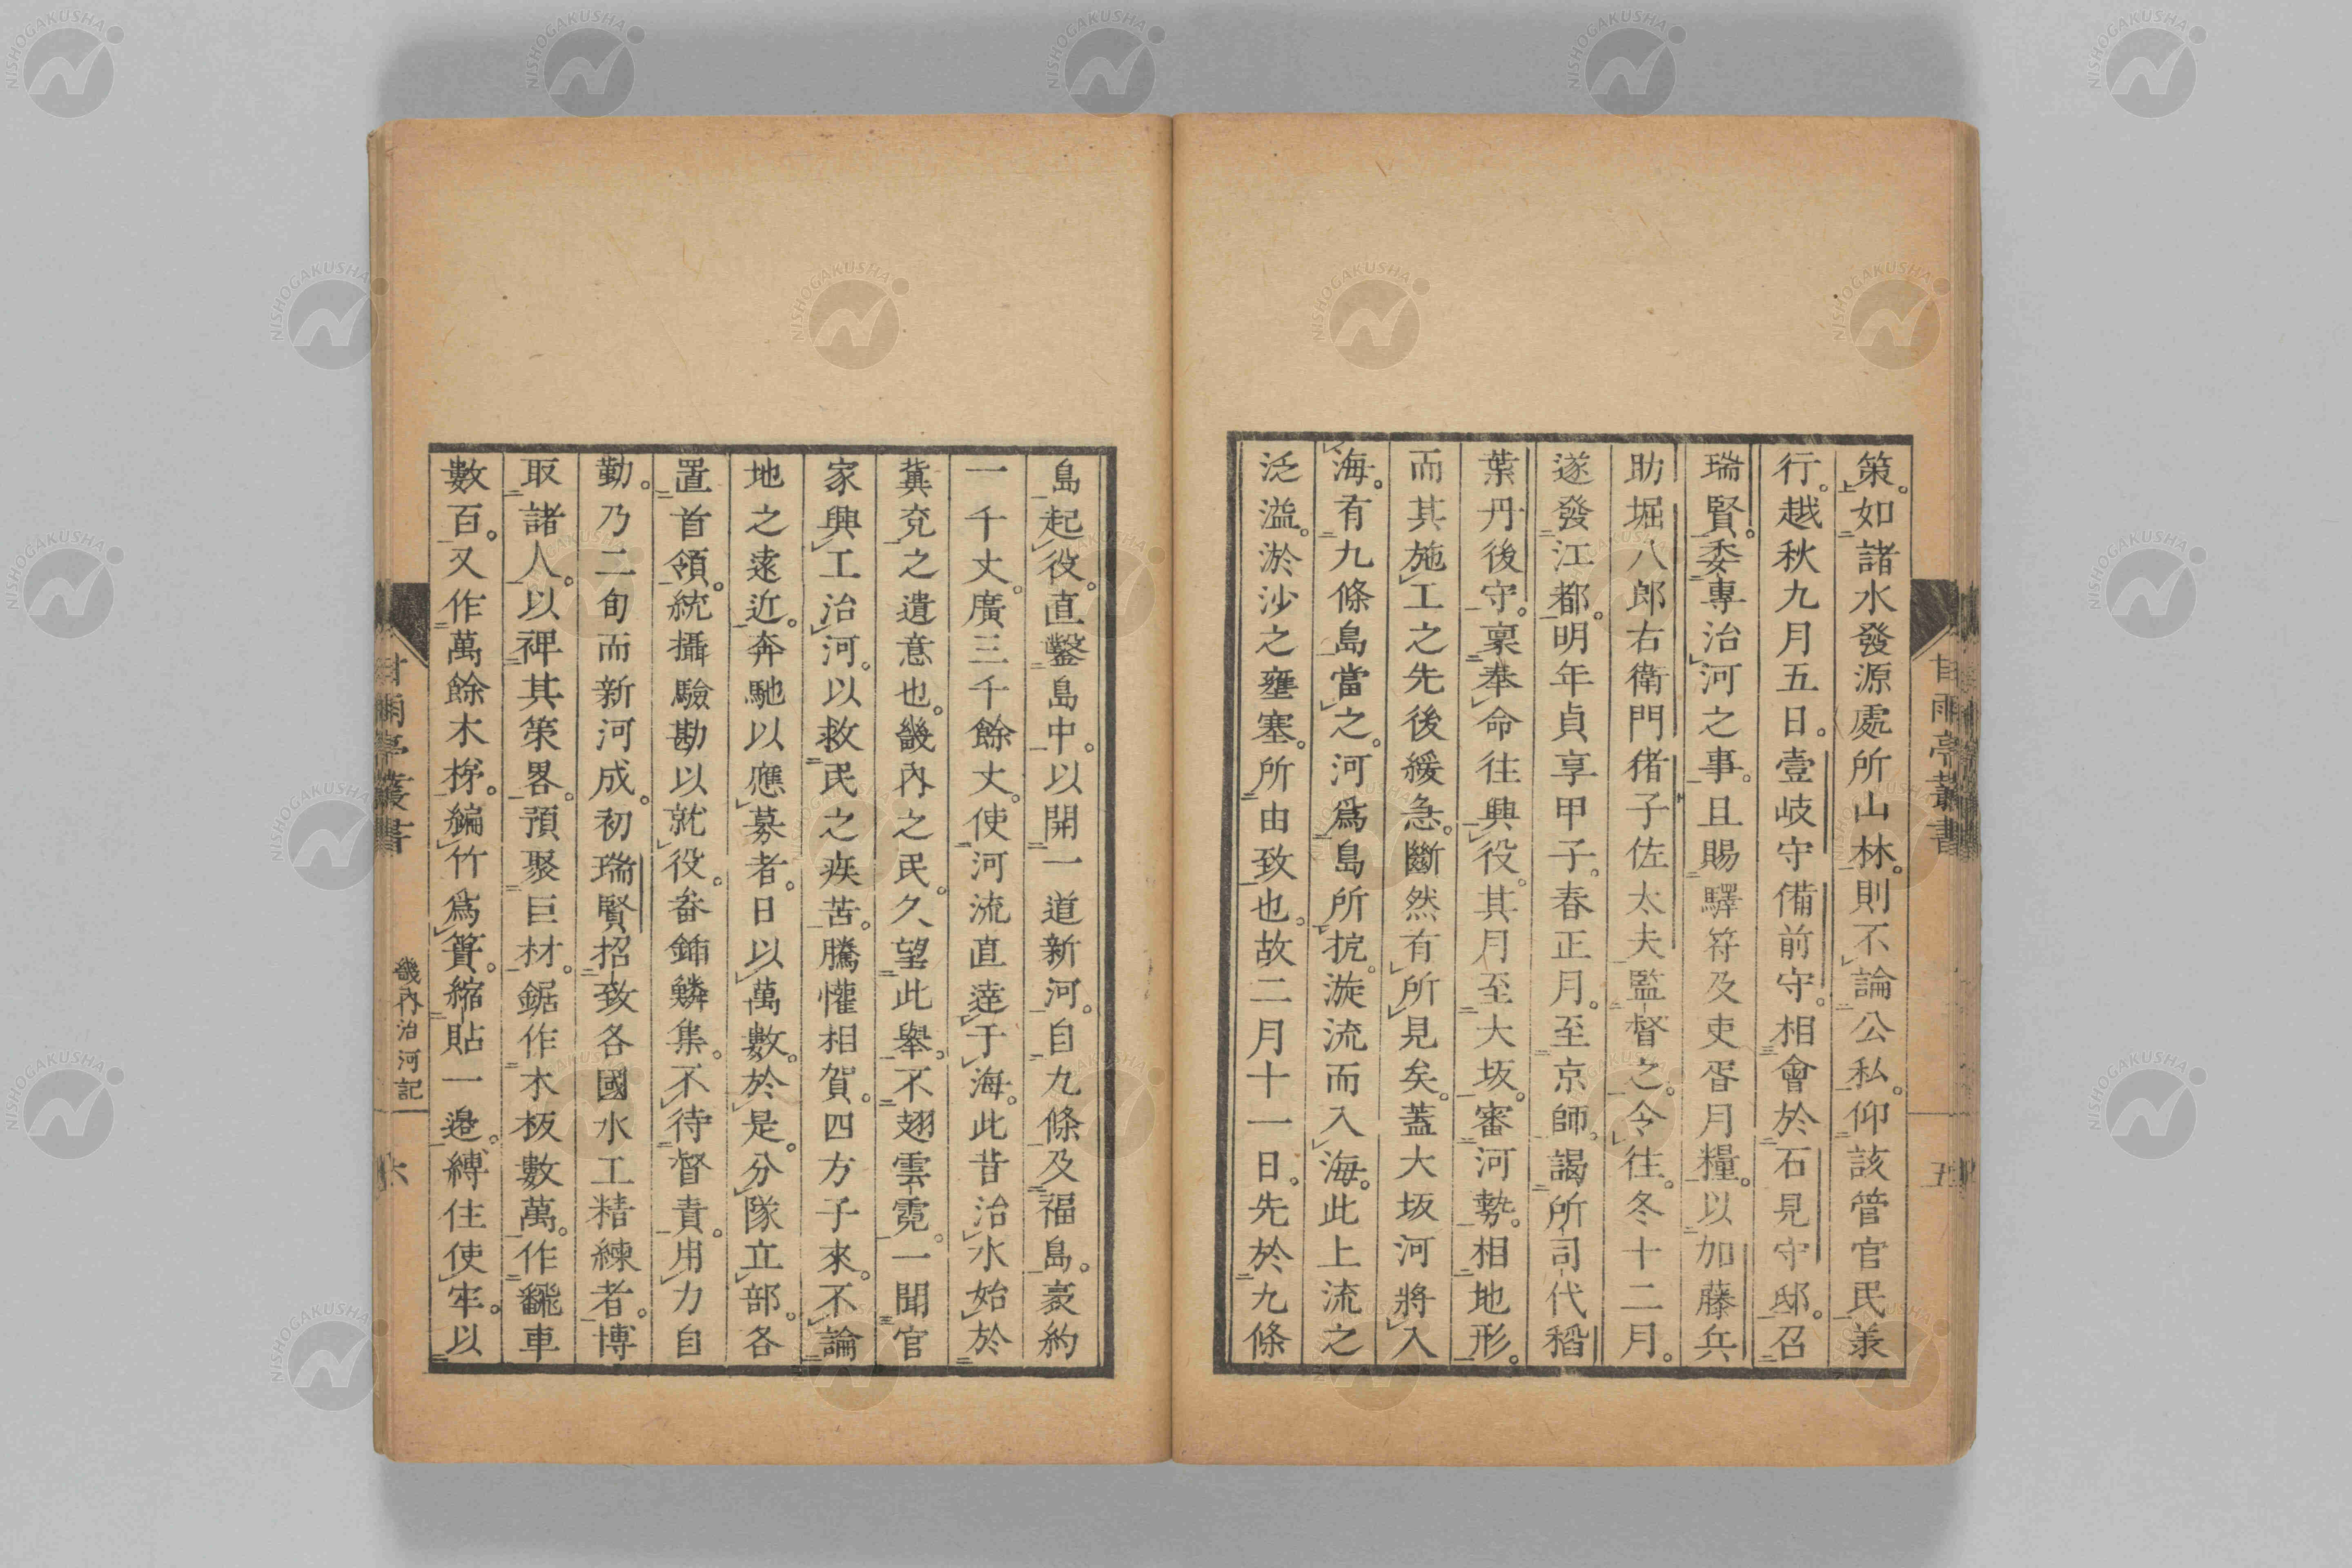 策。如諸水發源處所山林。則不論公私。仰該管官民義
行。越秋九月五日。壹岐守備前守。相會於石見守邸。召
瑞賢。委專治河之事。且賜驛符及吏胥月糧。以加藤兵
助堀八郎右衛門猪子佐太夫監督之。令往。冬十二月。
遂發江都。明年貞享甲子。春正月。至京師。謁所司代稻
葉丹後守。稟奉命往興役。其月至大坂。審河勢。相地形。
而其施工之先後緩急。斷然有所見矣。蓋大坂河將入
海。有九條島當之。河爲島所抗。漩流而入海。此上流之
泛溢。淤沙之壅塞。所由致也。故二月十一日。先於九條
甘雨亭叢書
五
島起役。直鑿島中。以開一道新河。自九條及福島。袤約
一千丈。廣三千餘丈。使河流直達于海。此昔治水始於
冀兗之遺意也。畿內之民。久望此舉。不翅雲霓。一聞官
家興工治河。以救民之疾苦。騰懽相賀。四方子來。不論
地之遠近。奔馳以應募者。日以萬數。於是。分隊立部。各
置首領。統攝驗勘以就役。畚鍤鱗集。不待督責。用力自
勤。乃二旬而新河成。初瑞賢招致各國水工精練者。博
取諸人。以裨其策畧。預聚巨材。鋸作木板數萬。作飜車
數百。又作萬餘木桴。編竹爲簀。縮貼一邉。縛住使牢。以
甘雨亭叢書
畿內治河記
六